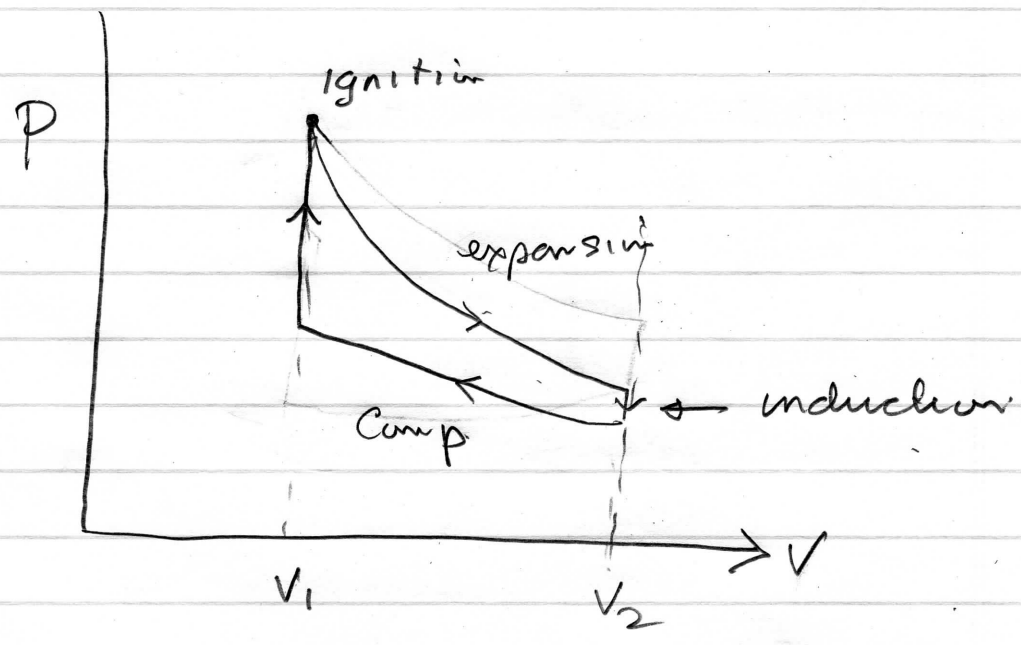 Ignition
P
expansion
Comp.
← induction
V
V1
V2